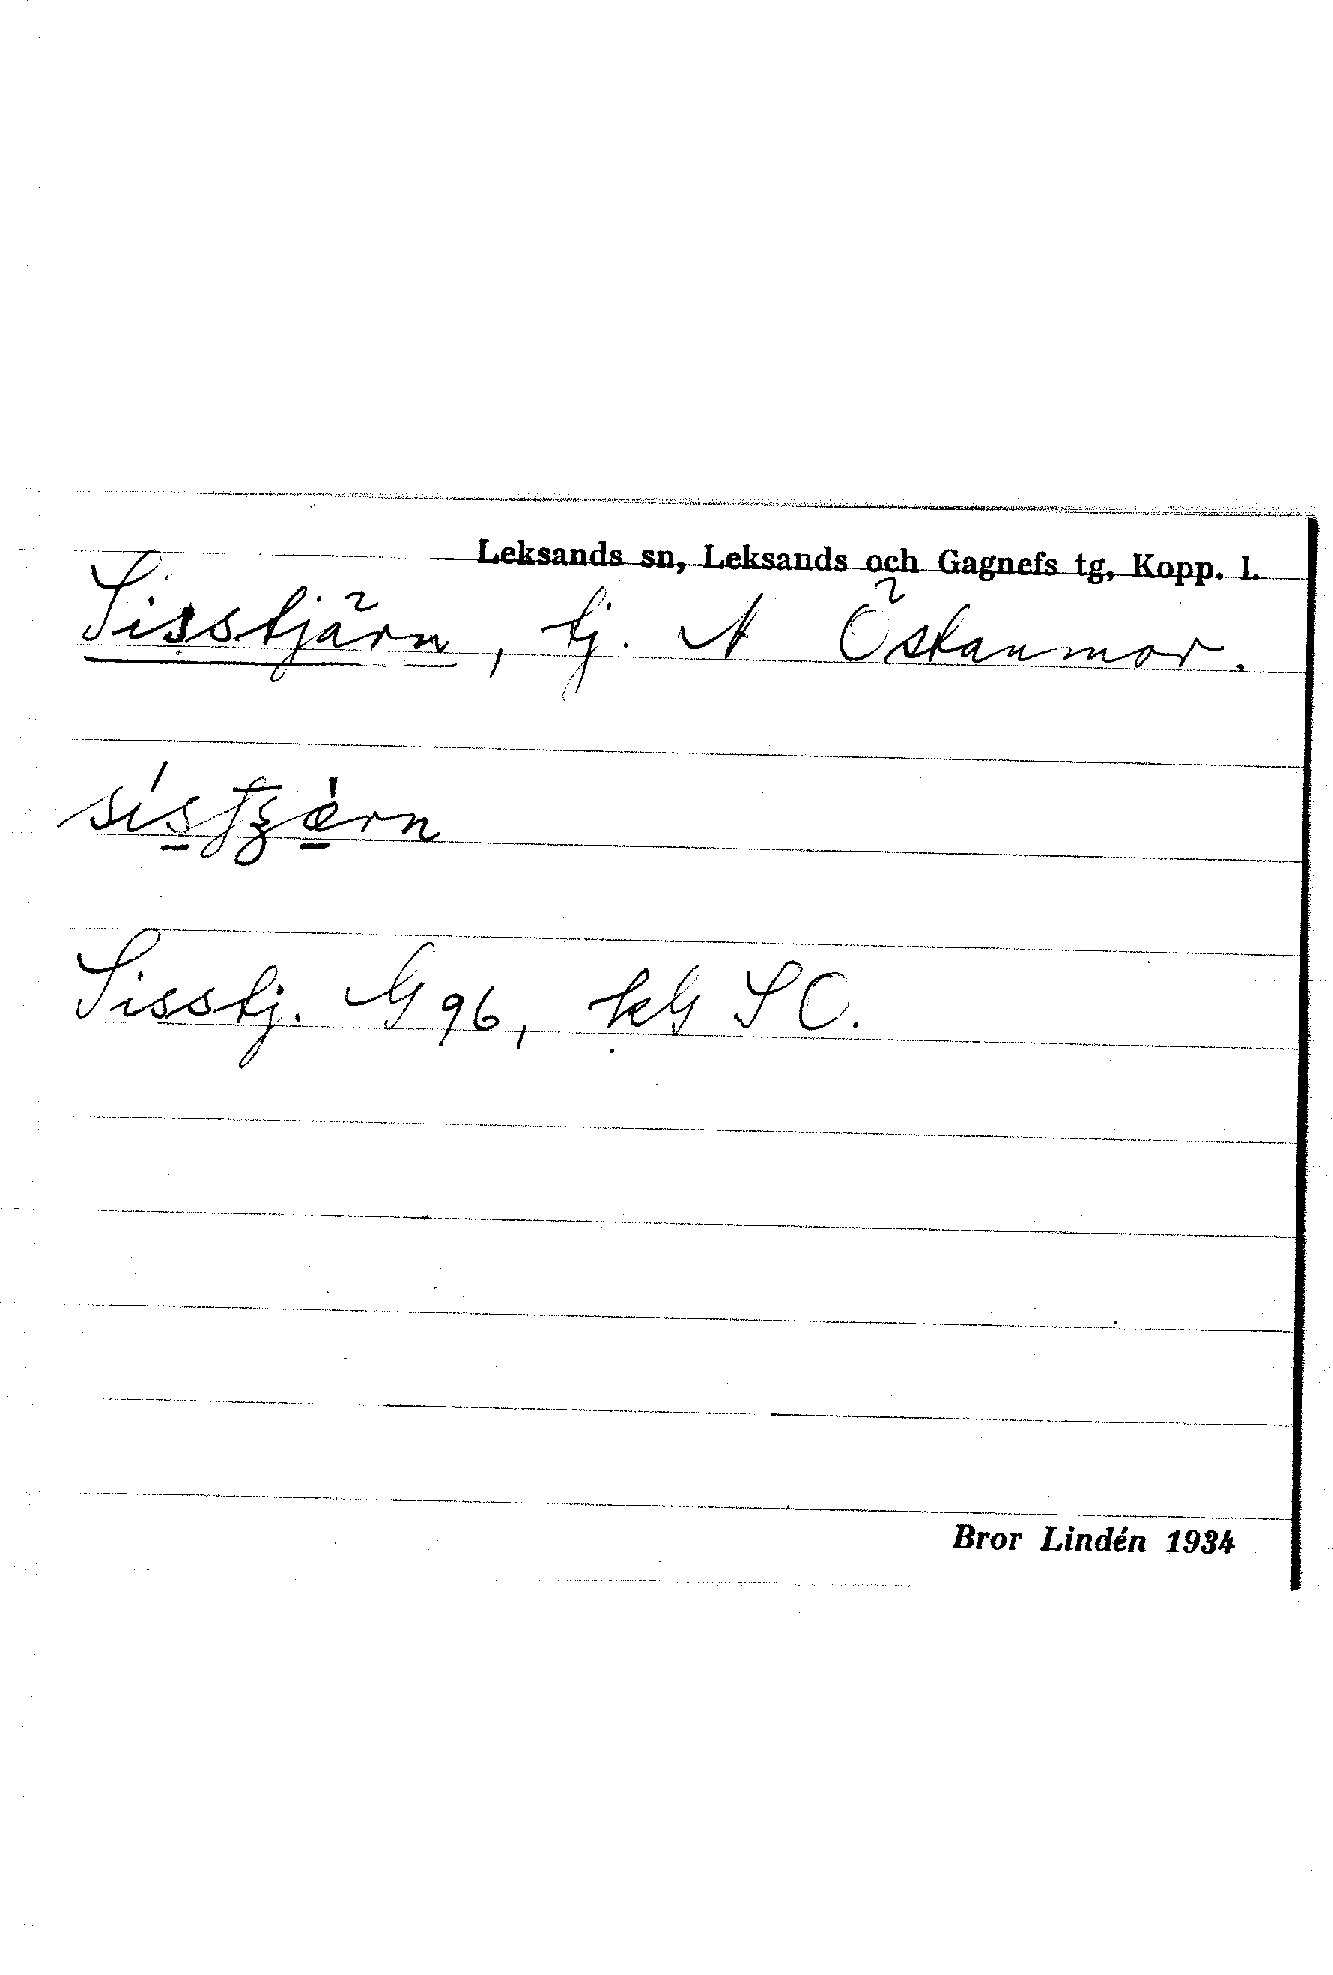 Leksands sn, Leksands och Gagnefs tg, Kopp. l.
Sisstjärn, tj. N Östanmor.
Sisstj. G 96, kG SO.
Bror Lindén 1934